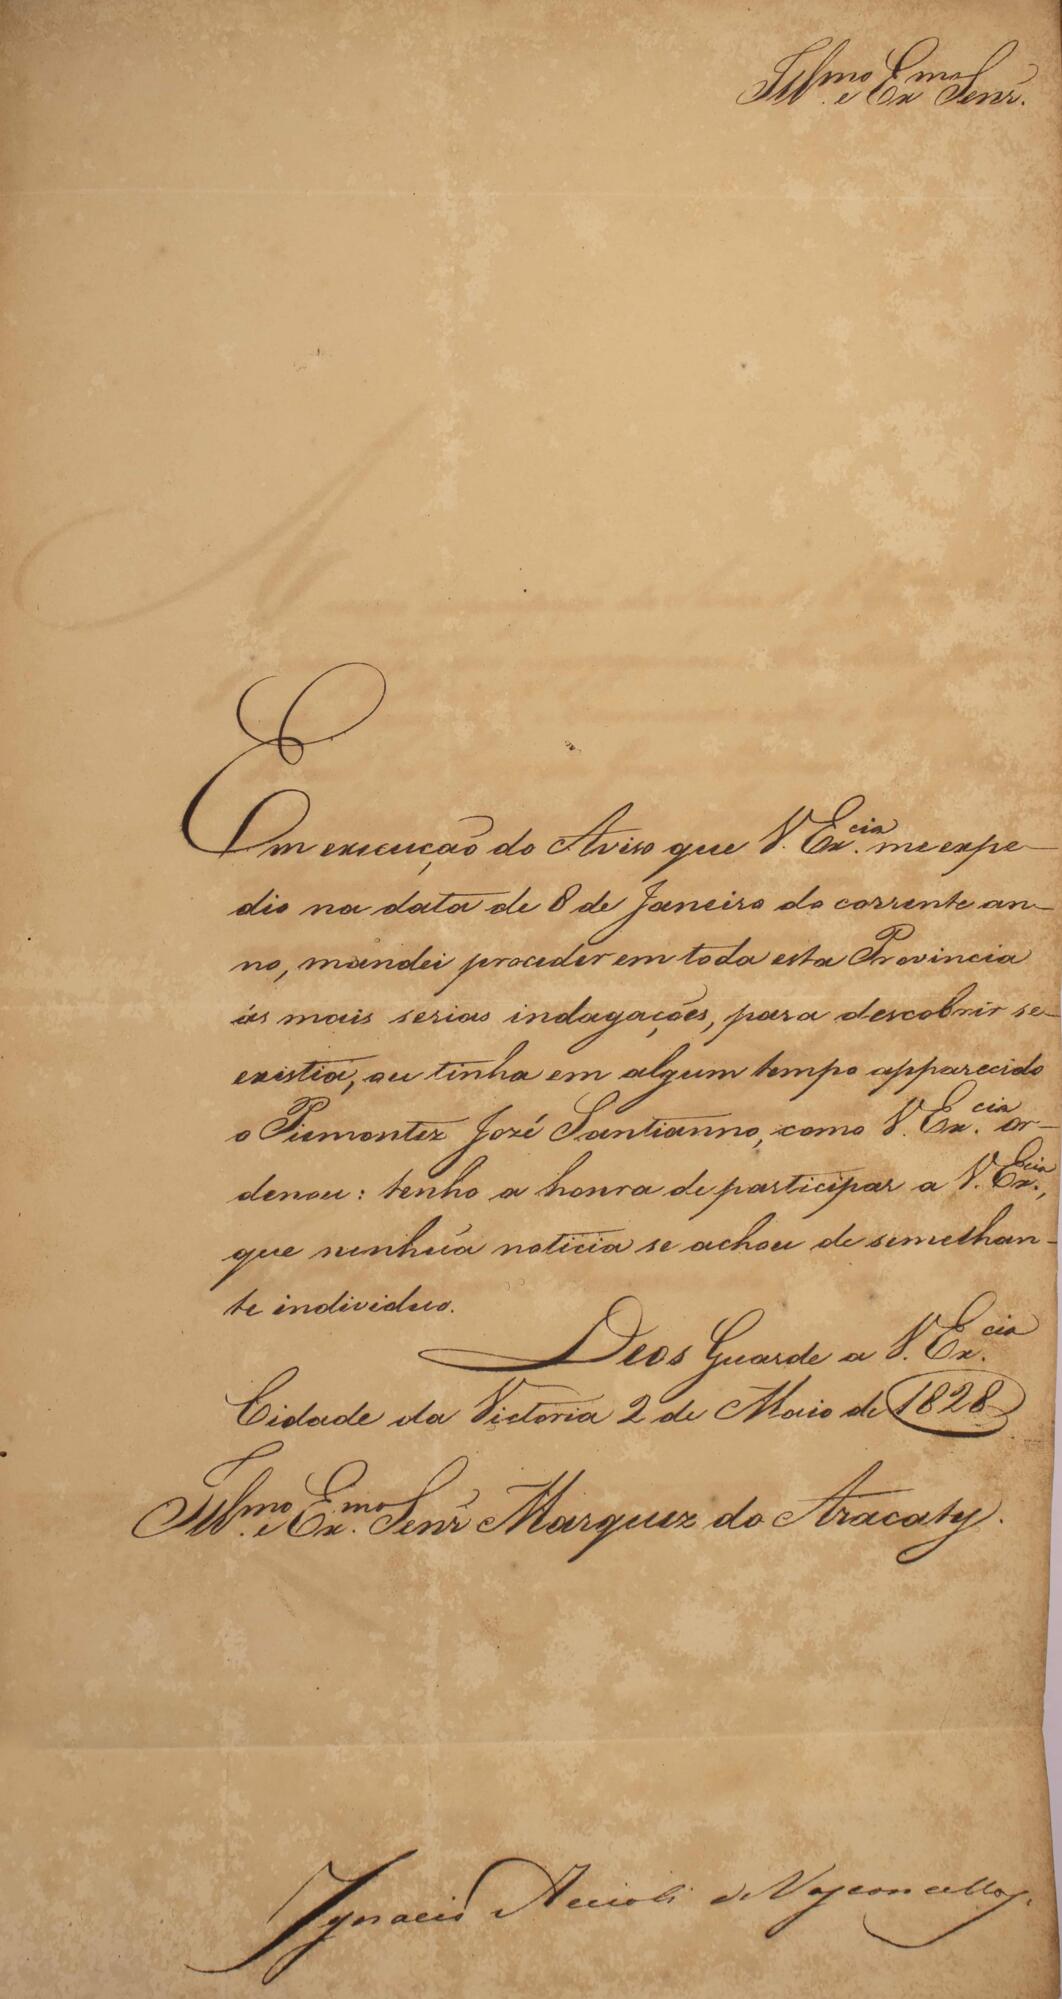 Illmo. e Exmo Senr.
Em execução do Aviso que V. Excia. me expe-
dio na data de 8 de Janeiro do corrente an-
no, mandei proceder em toda esta Provincia
ás mais serias indagações, para descobrir se
existia, ou tinha em algum tempo apparecido
o Piemontez Jozé Santianno, como V. Excia. or-
denou: tenho a honra de participar a V. Excia.,
que nenhũa noticia se achou de semelhan-
te individuo.
Deos Guarde a V. Excia.
Cidade da Victoria 2 de Maio de 1828
Illmo. e Exmo. Senr. Marquez do Aracaty.
Ignacio Accioli de Vasconcellos.